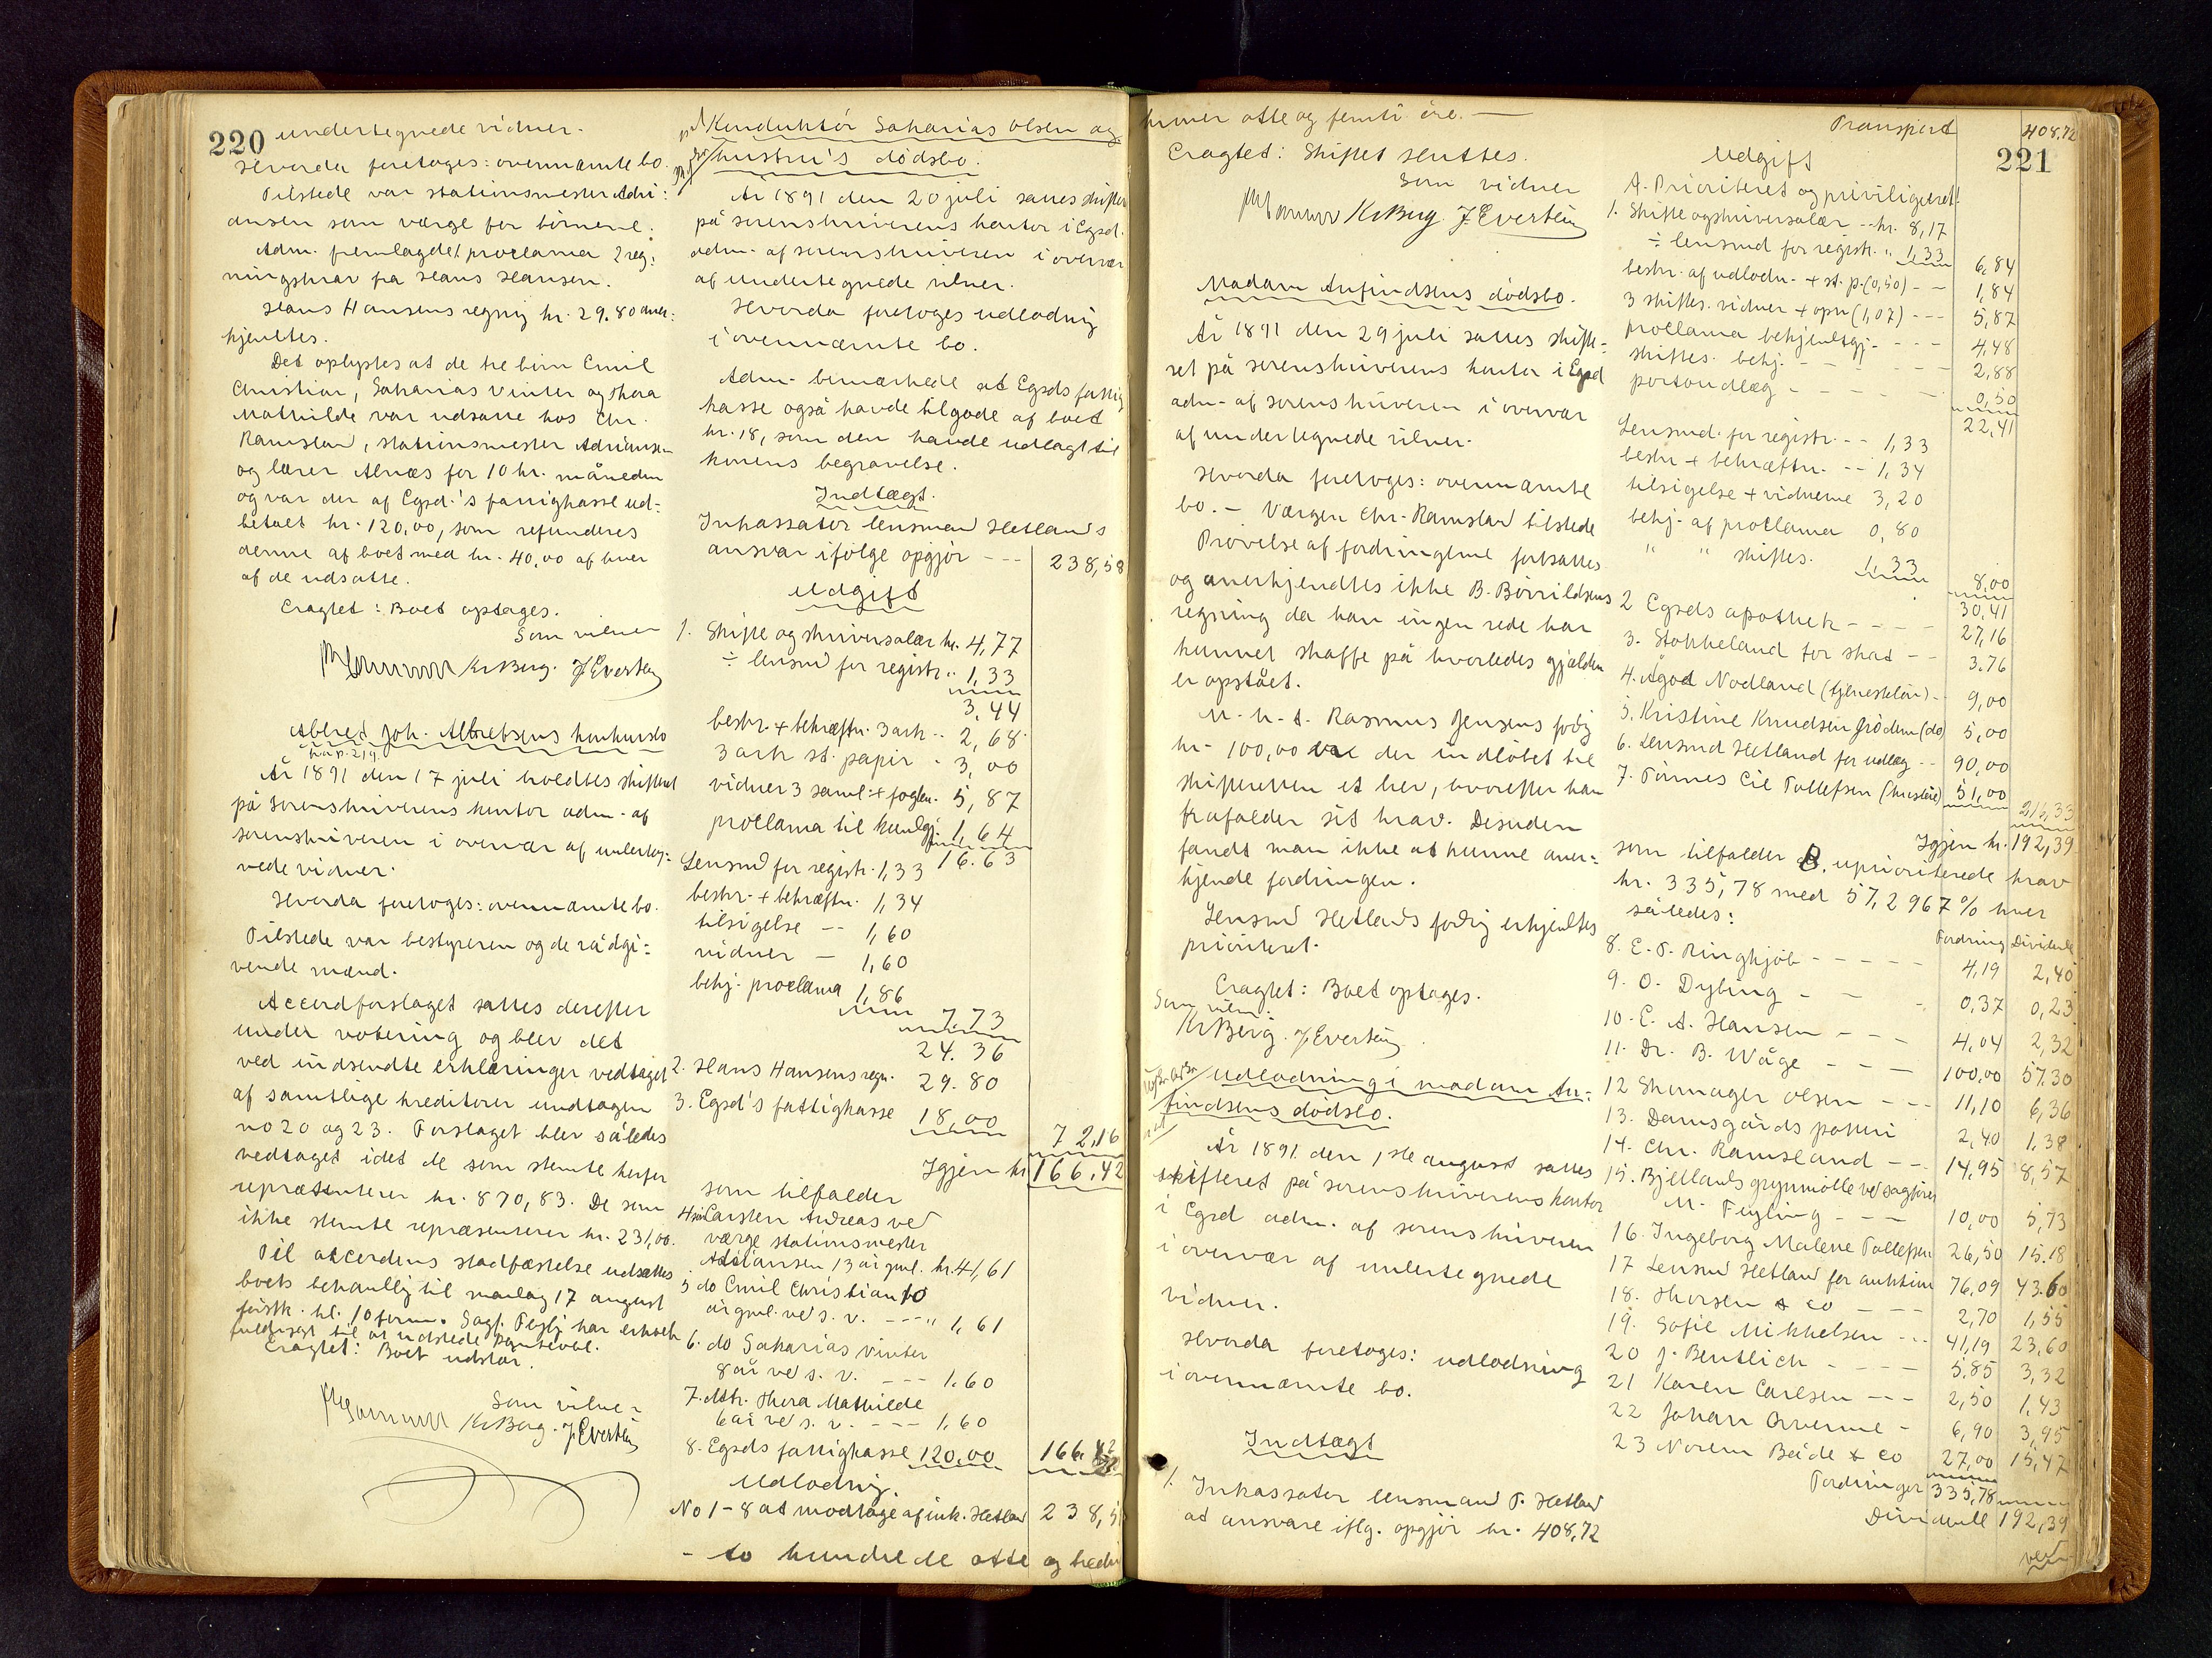 220 undertegnede vidner.
Hvorda foretoges: ovennævnte bo.
Tilstede var stationsmester Adri:
ansen som værge for börnene.
Adm. fremlagde 1 proclama 2 reg:
ningskrav fra Hans Hansen.
Hans Hansens regnig kr. 29.80 aner:
kjentes.
Det oplystes at de tre börn Emil
Christian, Saharias Vinter og Thora
Mathilde var udsatte hos Chr.
Ramsland, stationsmester Adriansen
og lærer Alnæs for 10 kr. måneden
og var der af Egsd.'s fattigkasse ud=
betalt kr. 120,00, som refunderes
denne af boet med kr. 40,00 af hver
af de udsatte.
Eragtet: Boet optages.
Som vidner
Kr Berg. J Evertsen
Abered Joh. Albretsens konkursbo
kfr p. 219.
År 1891 den 17 juli holdtes skifteret
på Sorenskriverens kontor adm. af
sorenskriveren i overvær af underteg=
nede vidner.
Hvorda foretoges: ovennævnte bo.
Tilstede var bestyreren og de rådgi=
vende mænd.
Accordforslaget sattes derefter
under votering og blev det
ved indsendte erklæringer vedtaget
af samtlige kreditorer undtagen
no 20 og 23. Forslaget blev således
vedtaget idet de som stemte herfor
repræsenterer kr. 870,83. De som
ikke stemte repræsenterer kr. 231,00.
Til accordens stadfæstelse udsættes
boets behandlig til mandag 17 august
förstk. kl. 10 form. Sagf. Feyling har erholdt
fuldmagt til at udstede panteobl.
Eragtet: Boet udstår.
Som vidner
Kr Berg. J Evertsen
Konduktör Saharias Olsen og
hustru's dödsbo.
År 1891 den 20 juli sattes skifter
på sorenskriverens kontor i Egsd.
adm. af sorenskriveren i overvær
af undertegnede vidner.
Hvorda foretoges udlodnig
i ovennævnte bo.
Adm. bemærkede at Egsds fattig
kasse også havde tilgode af boet
kr. 18, som den havde udlagt til
konens begravelse.
Indtægt.
Inkassator lensmand Hetlands
ansvar ifölge opgjör --- 238,58
Udgift
1. Skifte og skriversalær kr. 4,77
÷ lensmd for registr. " 1,33
3,44
beskr. + bekræftn. 3 ark -- 2,68
3 ark st. papir - 3,00
vidner 3 saml. + foglen. 5,87
proclama til kundgj. 1,64
16.63
Lensmd for registr. 1,33
beskr. + bekræftn. 1,34
tilsigelse -- 1,60
vidner — 1,60
bekj. proclama 1,86
7,73
24.36
2. Hans Hansens regn. 29.80
3. Egsd's fattigkasse 18,00
72,16
Igjen kr 166,42
som tilfalder
4 sön Carsten Andreas ved
værge stationsmester
Adriansen 13 år gml. kr. 41,61
5 do Emil Christian 10
år gml. ved s. v. --- " 1,61
6. do Saharias Vinter
8 år ved s. v. --- 1.60
7. dtr. Thora Mathilde
6 år ved s. v. --- 1,60
8. Egsds fattigkasse 120,00 166.42
Udlodnig.
No 1-8 at modtage af ink. Hetland 238,58
- to hundrede otte og tredve
kroner otte og femti öre. —
Eragtet: Skiftet sluttes.
Som vidner
Kr Berg. J Evertsen
Madam Anfindsens dödsbo.
År 1891 den 29 juli sattes skifte=
ret på sorenskriverens kontor i Egsd
adm. af sorenskriveren i overvær
af undertegnede vidner.
Hvorda foretoges: ovennævnte
bo. — Værgen Chr. Ramsland tilstede
Prövelse af fordringerne fortsattes
og anerkjendtes ikke B. Börrildsens
regning da han ingen rede har
kunnet skaffe på hvorledes gjælden
er opstået.
M. h. t. Rasmus Jensens fodrig
kr. 100,00 var der indlöbet til
skifteretten et brev, hvorefter han
frafalder sit krav. Desuden
fandt man ikke at kunne aner=
kjende fordringen.
Lensmd Hetlands fodrig erkjendtes
prioriteret.
Eragtet: Boet optages.
Som vidn.
Kr Berg. J Evertsen
Udlodning i madam An=
findsens dödsbo.
År 1891 den 1ste august sattes
skifteret på sorenskriverens kontor
i Egsd adm. af sorenskriveren
i overvær af undertegnede
vidner.
Hvorda foretoges: udlodning
i ovennævnte bo.
Indtægt
1. Inkassator lensmand T. Hetland
at ansvare iflg. opgjör kr. 408,72
Transport 408,72
221
Udgift
A. Prioriteret og priviligeret.
1. Skifte og skriversalær -- kr. 8,17
÷ lensmd for registr. " 1,33 6,84
beskr. af udlodn. + st. p. (0,50) -- 1,84
3 skiftes. vidner + opn (1,07) --- 5,87
proclama bekjendtgj. --- 4,48
skiftes. bekj. --- 2,88
portoudlæg --- 0,50
22,41
Lensmd. for registr. -- 1,33
beskr + bekræftn. -- 1,34
tilsigelse + vidnerne 3,20
bekj. af proclama 0,80
" " skiftes. 1,33
8,00
30,41
2 Egsds apothek --- 27,16
3. Stokkeland for skat -- 3.76
4. Ågot Nodland (tjenestelön) -- 9,00
5. Kristine Knudsen Grödem (do) 5,00
6. Lensmd Hetland for udlæg -- 90,00
7. Tönnes Eil Tollefsen (husleie) 51,00
216,33
Igjen kr. 192,39
som tilfalder B. uprioriterede krav
kr. 335,78 med 57,2967% hver
således:
Fordring Dividende
8. E. T. Ringkjöb ---- 4,19 2,40
9. O. Dybing --- 0,37 0,23
10. E. A. Hansen --- 4,04 2,32
11. Dr. B. Wåge --- 100,00 57.30
12 Skomager Olsen --- 11,10 6,36
13. Damsgårds potteri 2,40 1,38
14. Chr. Ramsland -- 14,95 8,57
15. Bjellands grynmölle ved sagförer
M. Feyling --- 10,00 5,73
16. Ingeborg Malene Tollefsen 26,50 15.18
17 Lensmd Hetland for auktion 76,09 43.60
18. Thorsen & co --- 2,70 1,55
19. Sofie Mikkelsen --- 41,19 23,60
20 J. Bentlich ---- 5.85 3,32
21 Karen Carlsen --- 2,50 1.43
22 Johan Arvenne - 6,90 3,95
23 Noren Bøide & co 27,00 15,47
Fordringer 335,78
Dividende 192,39
vend